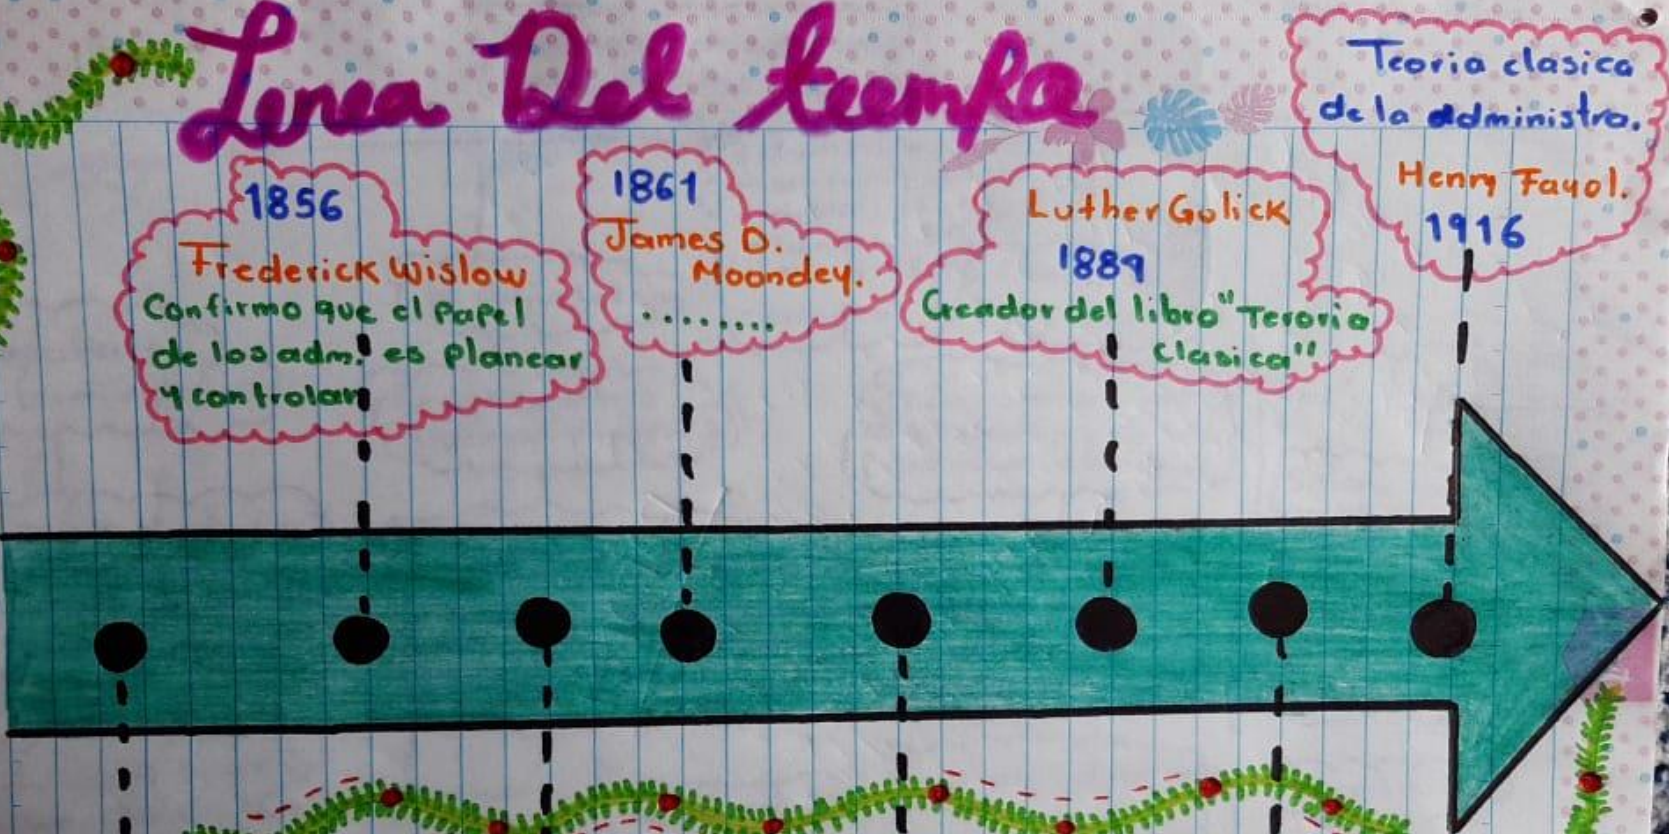 Linea Del tiempo
1856
Frederick Wislow
Confirmo que el papel
de los adm. es planear
y controlar
1861
James D.
Moondey.
........
Luther Golick
1889
Creador del libro "Teroria
clasica"
Teoria clasica
de la administra.
Henry Fayol.
1916